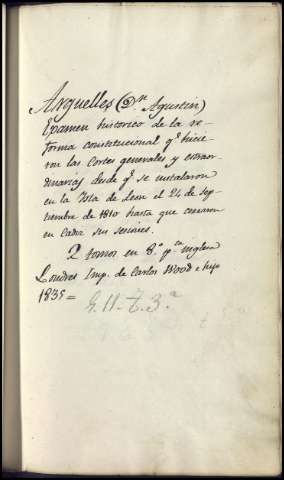 Arguelles (Dn. Agustin)
Examen historico de la re-
forma constitucional q.e hicie-
ron las Cortes generales y estraor-
dinarias desde q.e se instalaron
en la Isla de Leon el 24 de Sep-
tiembre de 1810 hasta que cerraron
en Cadiz sus sesiones.
2 tomos en 8.º p.ta inglesa
Londres Imp. de Carlos Wood e hijo
1835=
E. 11. t. 3.ª